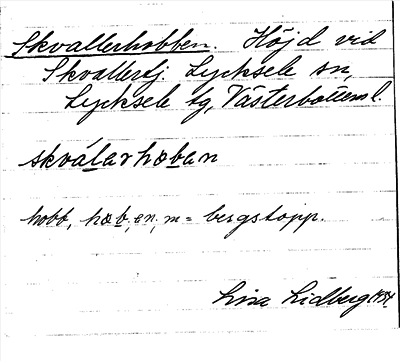 Skvallerhobben. Höjd vid
Skvallertj Lycksele sn,
Lycksele tg, Västerbottens l.
skválarhɷban
hobb, hɷb, en, m = bergstopp.
Lisa Lidberg